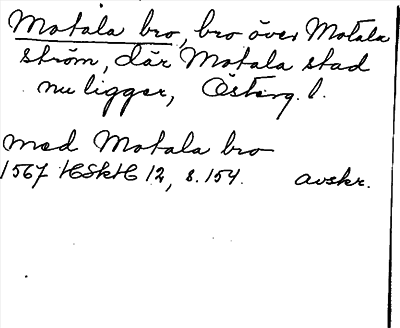 Motala bro, bro över Motala
ström, där Motala stad
nu ligger, Österg. l.
med Motala bro
1567 HSkH 12, s. 154. avskr.